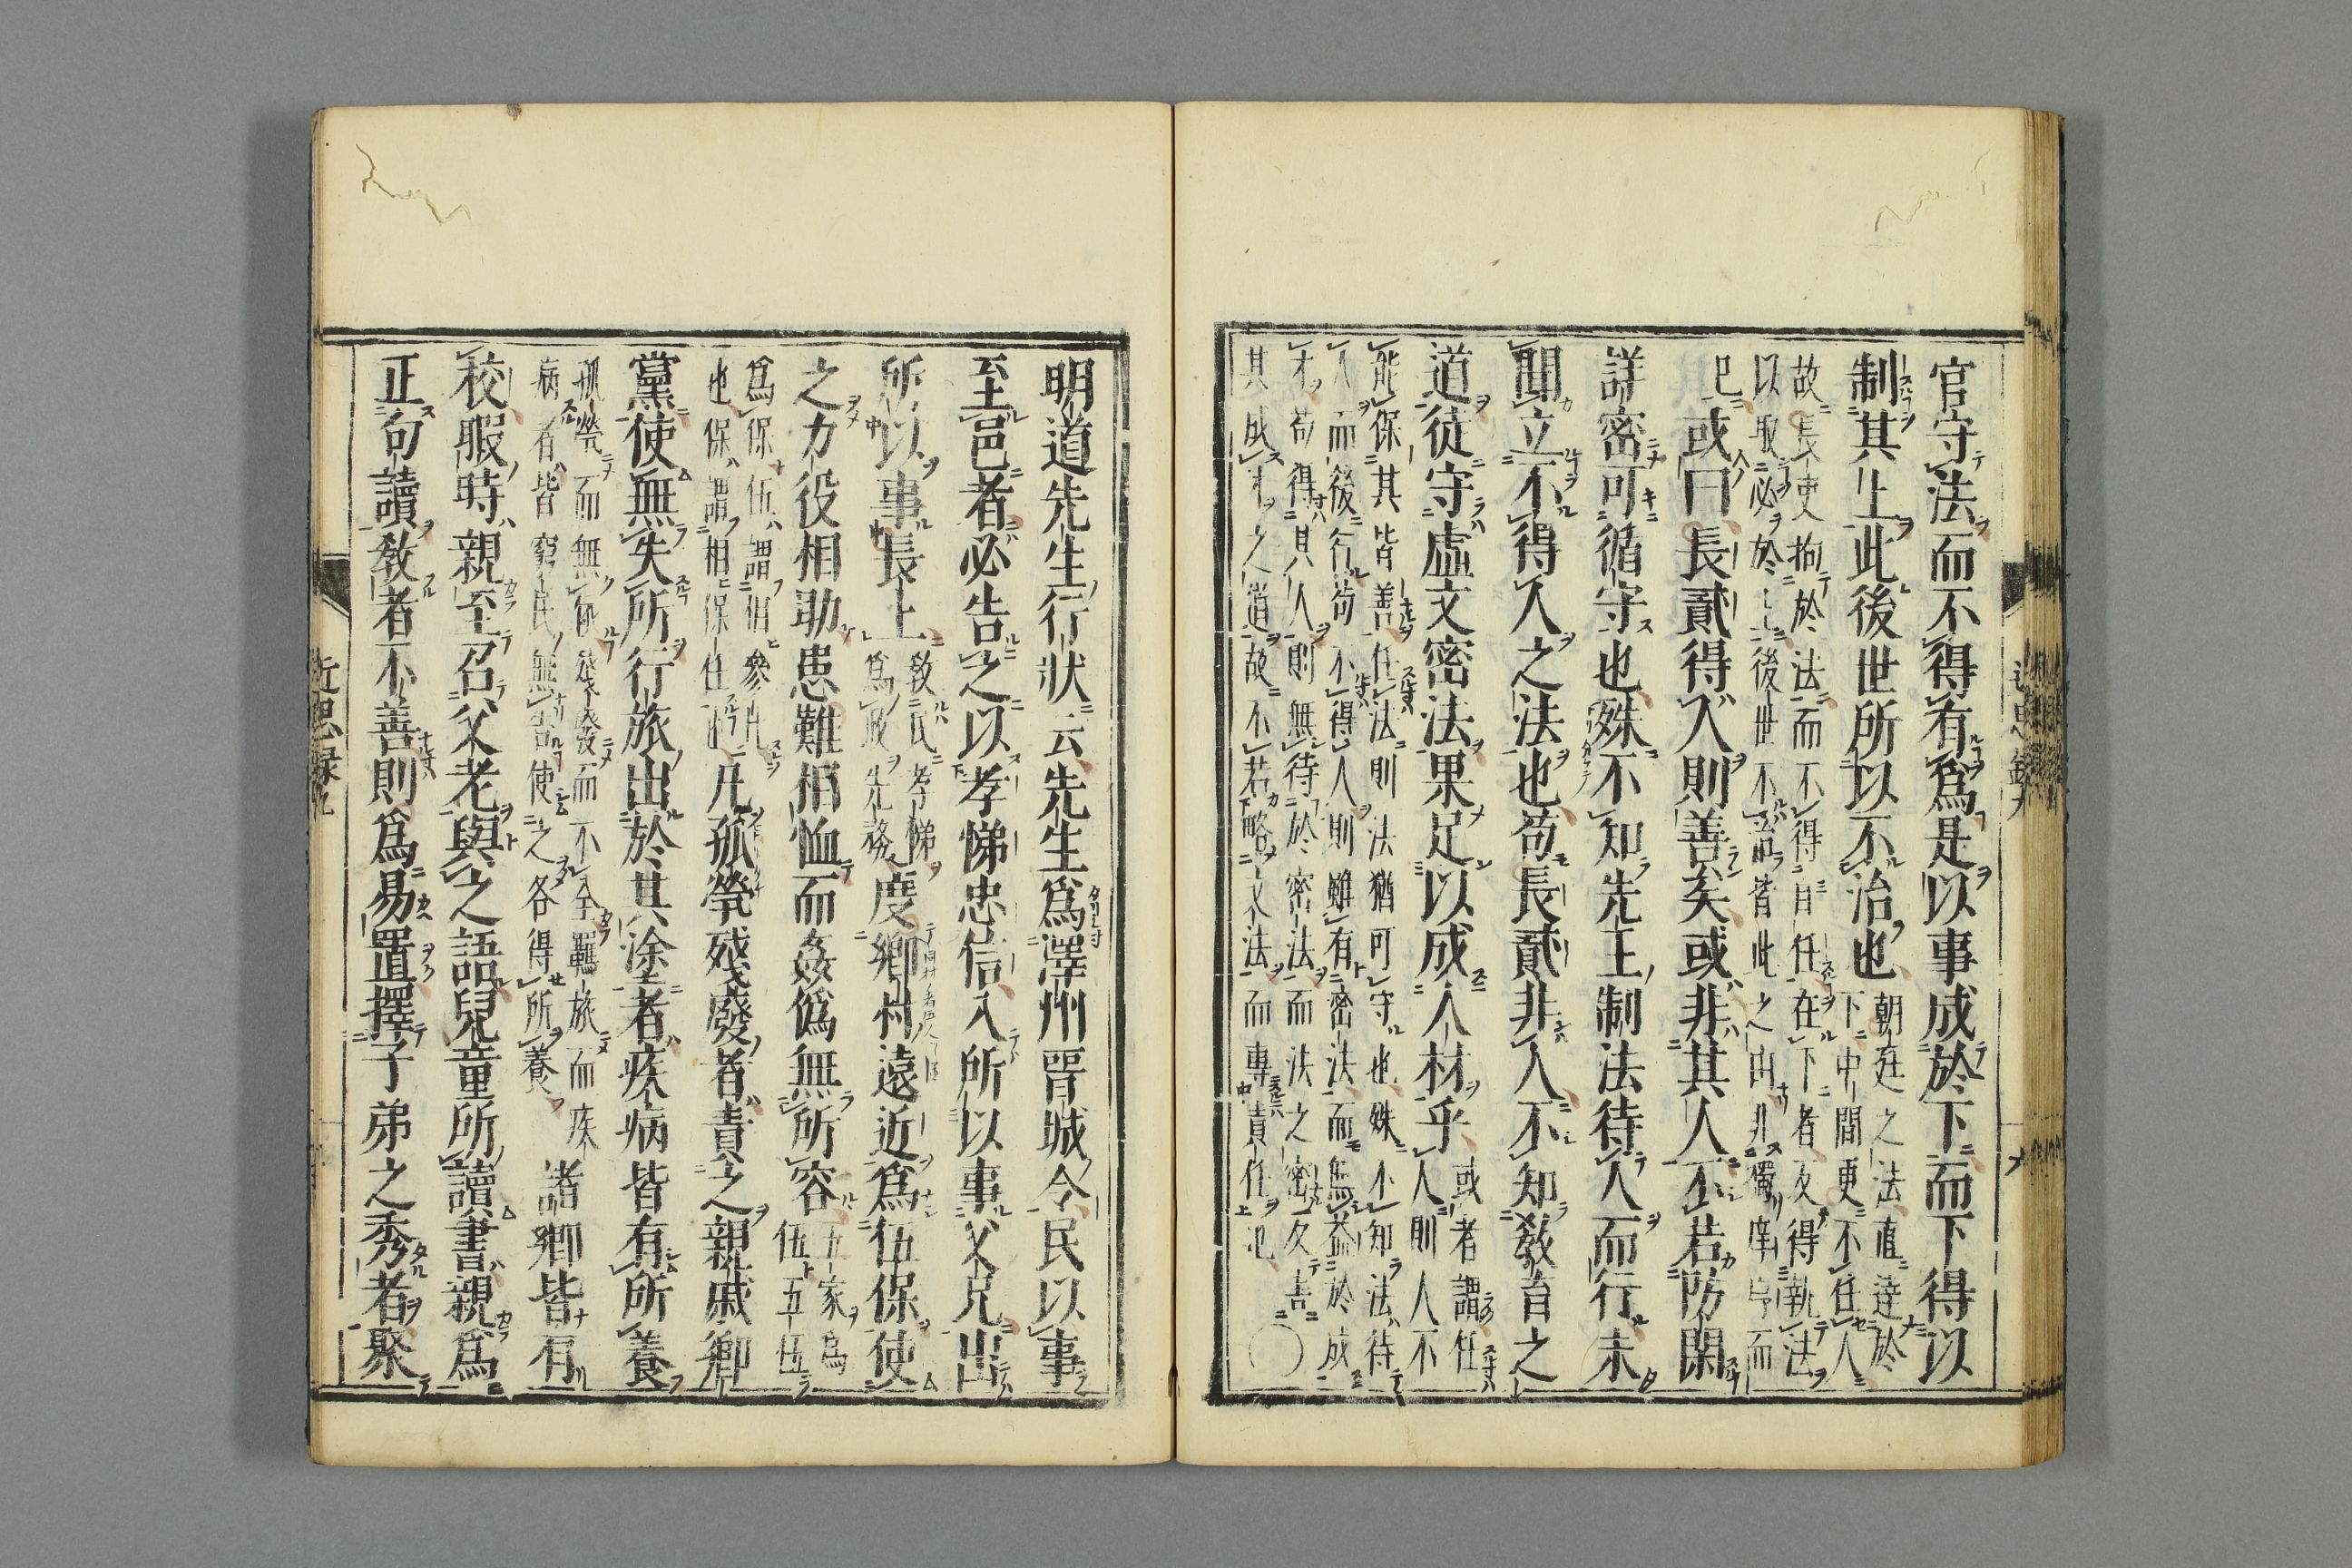 官守法而不得有爲是以事成於下而下得以
制其上此後世所以不治也
朝廷之法直達於
下中間更不任人
故長吏拘於法而不得自任在下者反得執法
以取必於上後世不治皆此之由非獨庠序而
已或曰長貳得人則善矣或非其人不若防閑
詳密可循守也殊不知先王制法待人而行未
聞立不得人之法也苟長貳非人不知敎育之
道徒守虛文密法果足以成人材乎
或者謂任
人則人不
能保其皆善任法則法猶可守也殊不知法待
人而後行苟不得人則雖有密法而無益於成
才苟得其人則無待於密法而法之密反害
其成才之道故不若略文法而專責任也〇
明道先生行狀云先生爲澤州晉城令民以事
至邑者必告之以孝悌忠信入所以事父兄出
所以事長上
敎民孝悌
爲政先務
度鄉村遠近爲伍保使
之力役相助患難相恤而姦僞無所容
五家爲
伍五伍
爲保伍謂相參比
也保謂相保任
凡孤煢殘廢者責之親戚鄉
黨使無失所行旅出於其塗者疾病皆有所養
孤煢而無依殘廢而不全羈旅而疾
病者皆窮民無告使之各得所養
諸鄉皆有
校暇時親至召父老與之語兒童所讀書親爲
正句讀敎者不善則爲易置擇子弟之秀者聚
近思錄 九